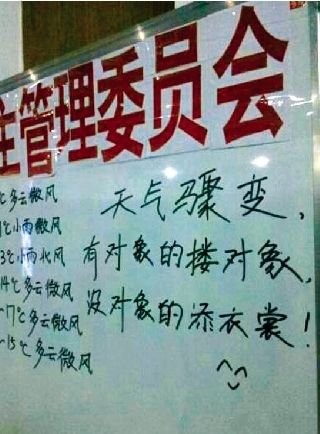 主管理委员会
℃多云微风
1℃小雨微风
3℃小雨北风
14℃多云微风
~7℃多云微风
~15℃多云微风
天气骤变，
有对象的搂对象，
没对象的添衣裳！
^^